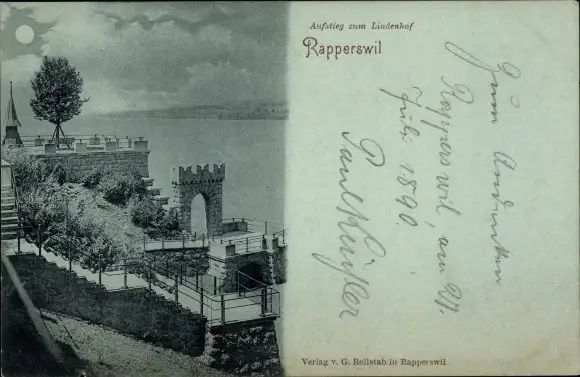 Aufstieg zum Lindenhof
Rapperswil
Zum Andenken
Rapperswil, am 21.
Juli 1890.
Paul
Verlag v. G. Rellstab in Rapperswil